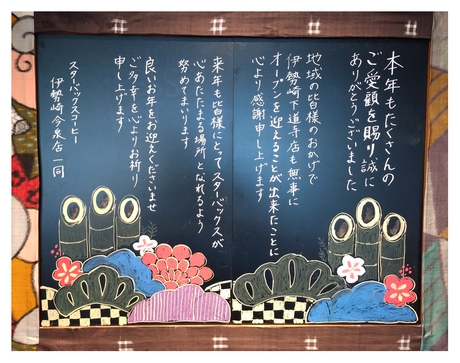 本年もたくさんの
ご愛顧を賜り誠に
ありがとうございました
地域の皆様のおかげで
伊勢崎下道寺店も無事に
オープンを迎えることが出来たことに
心より感謝申し上げます
来年も皆様にとってスターバックスが
心あたたまる場所となれるよう
努めてまいります
良いお年をお迎えくださいませ
ご多幸を心よりお祈り
申し上げます
スターバックスコーヒー
伊勢崎今泉店一同